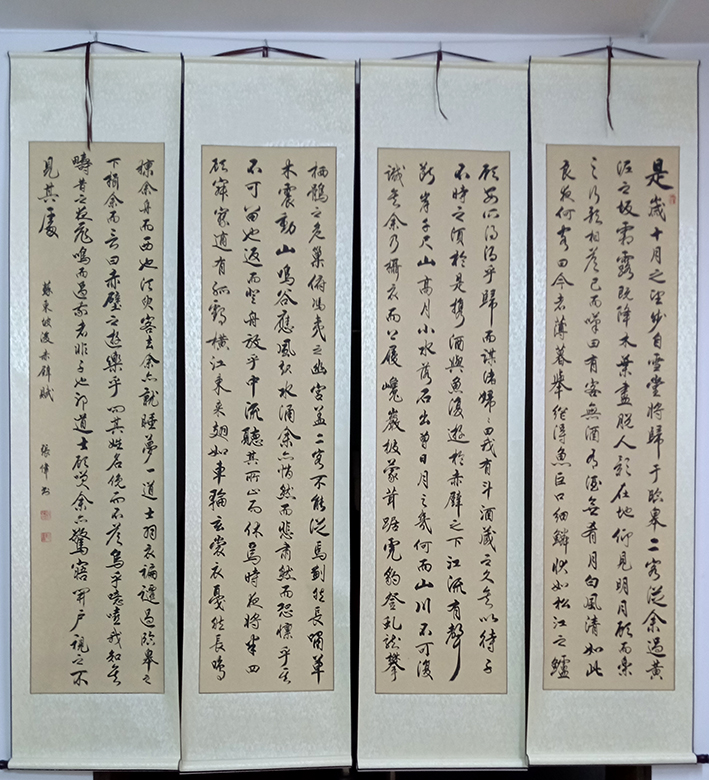 是歲十月之望步自雪堂將歸于臨皋二客從余過黃
泥之坂霜露既降木葉盡脫人影在地仰見明月顧而樂
之行歌相答已而嘆曰有客無酒有酒無肴月白風清如此
良夜何客曰今者薄暮舉網得魚巨口細鱗狀如松江之鱸
顧安所得酒乎歸而謀諸婦婦曰我有斗酒藏之久矣以待子
不時之須於是攜酒與魚復遊於赤壁之下江流有聲
斷岸千尺山高月小水落石出曾日月之幾何而山川不可復
識矣余乃攝衣而上履巉巖披蒙茸踞虎豹登虬龍攀
栖鶻之危巢俯馮夷之幽宮蓋二客不能從焉劃然長嘯草
木震動山鳴谷應風起水涌余亦悄然而悲肅然而恐凜乎其
不可留也返而登舟放乎中流聽其所止而休焉時夜將半四
顧寂寥適有孤鶴橫江東來翅如車輪玄裳衣戛然長鳴
掠余舟而西也須臾客去余亦就睡夢一道士羽衣蹁躚過臨皋之
下揖余而言曰赤壁之遊樂乎問其姓名俛而不答烏乎噫嘻我知矣
疇昔之夜飛鳴而過我者非子也耶道士顧笑余亦驚寤開戶視之不
見其處
蘇東坡後赤壁賦 張偉